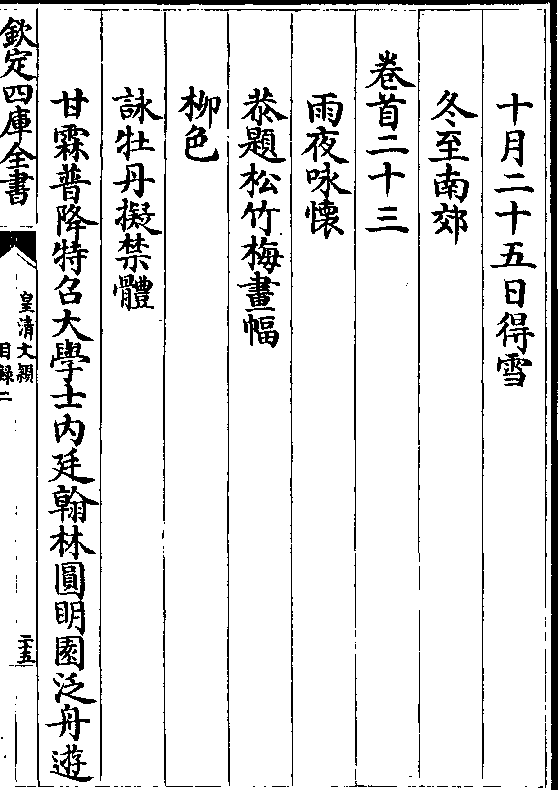 十月二十五日得雪
冬至南郊
卷首二十三
雨夜咏懷
恭題松竹梅畫幅
柳色
詠牡丹擬禁體
甘霖普降特召大學士内廷翰林圓明園泛舟遊
欽定四庫全書
皇清文潁
目錄二
二五